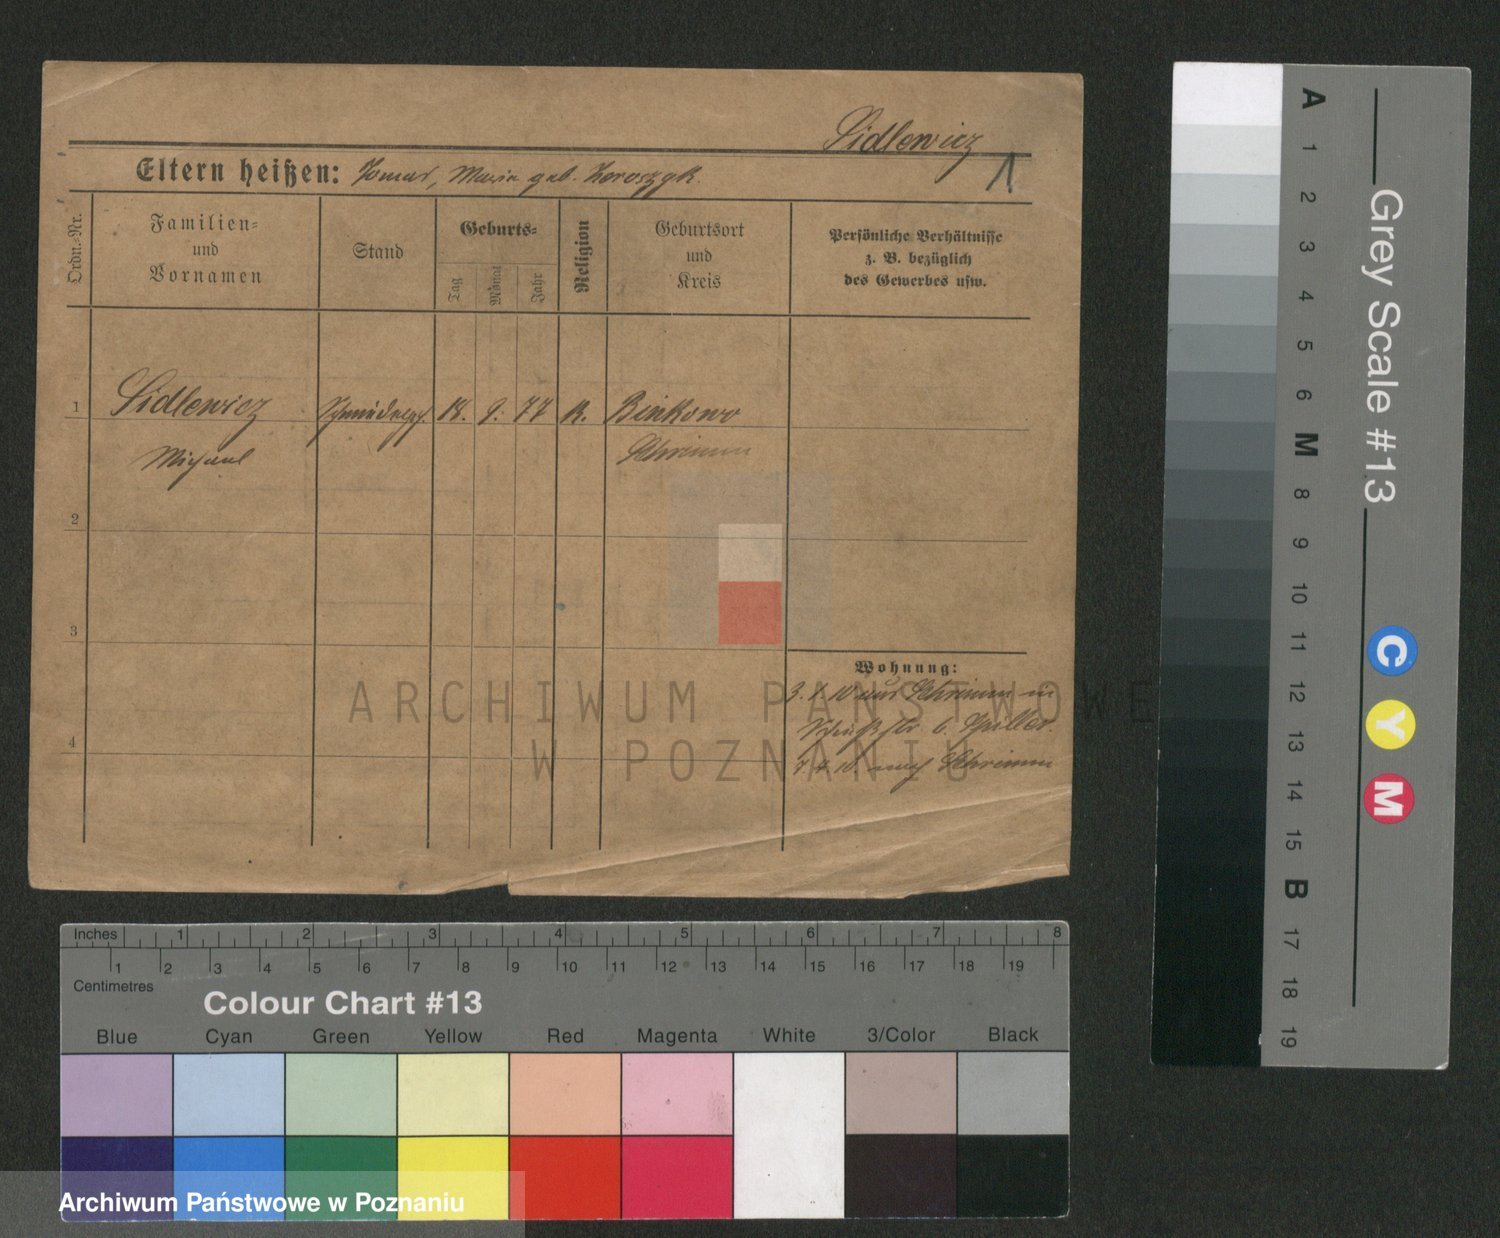 Sidlewicz
1
Eltern heißen: Tomas, Maria geb.
Ordn.-Nr.
Familien-
und
Vornamen
Stand
Geburts-
Tag
Monat
Jahr
Religion
Geburtsort
und
Kreis
Persönliche Verhältnisse
z. B. bezüglich
des Gewerbes usw.
1 Sidlewicz 18. 9. 77 K. Binkowo
Michael Schrimm
2
3
4
Wohnung:
3. 1. 10 aus Schrimm in
str 6.
4. 10 nach Schrimm
ARCHIWUM PAŃSTWOWE
W POZNANIU
Inches 1 2 3 4 5 6 7 8
1 2 3 4 5 6 7 8 9 10 11 12 13 14 15 16 17 18 19
Centimetres
Colour Chart #13
Blue Cyan Green Yellow Red Magenta White 3/Color Black
Archiwum Państwowe w Poznaniu
Grey Scale #13
A 1 2 3 4 5 6 M 8 9 10 11 12 13 14 15 B 17 18 19
C Y M